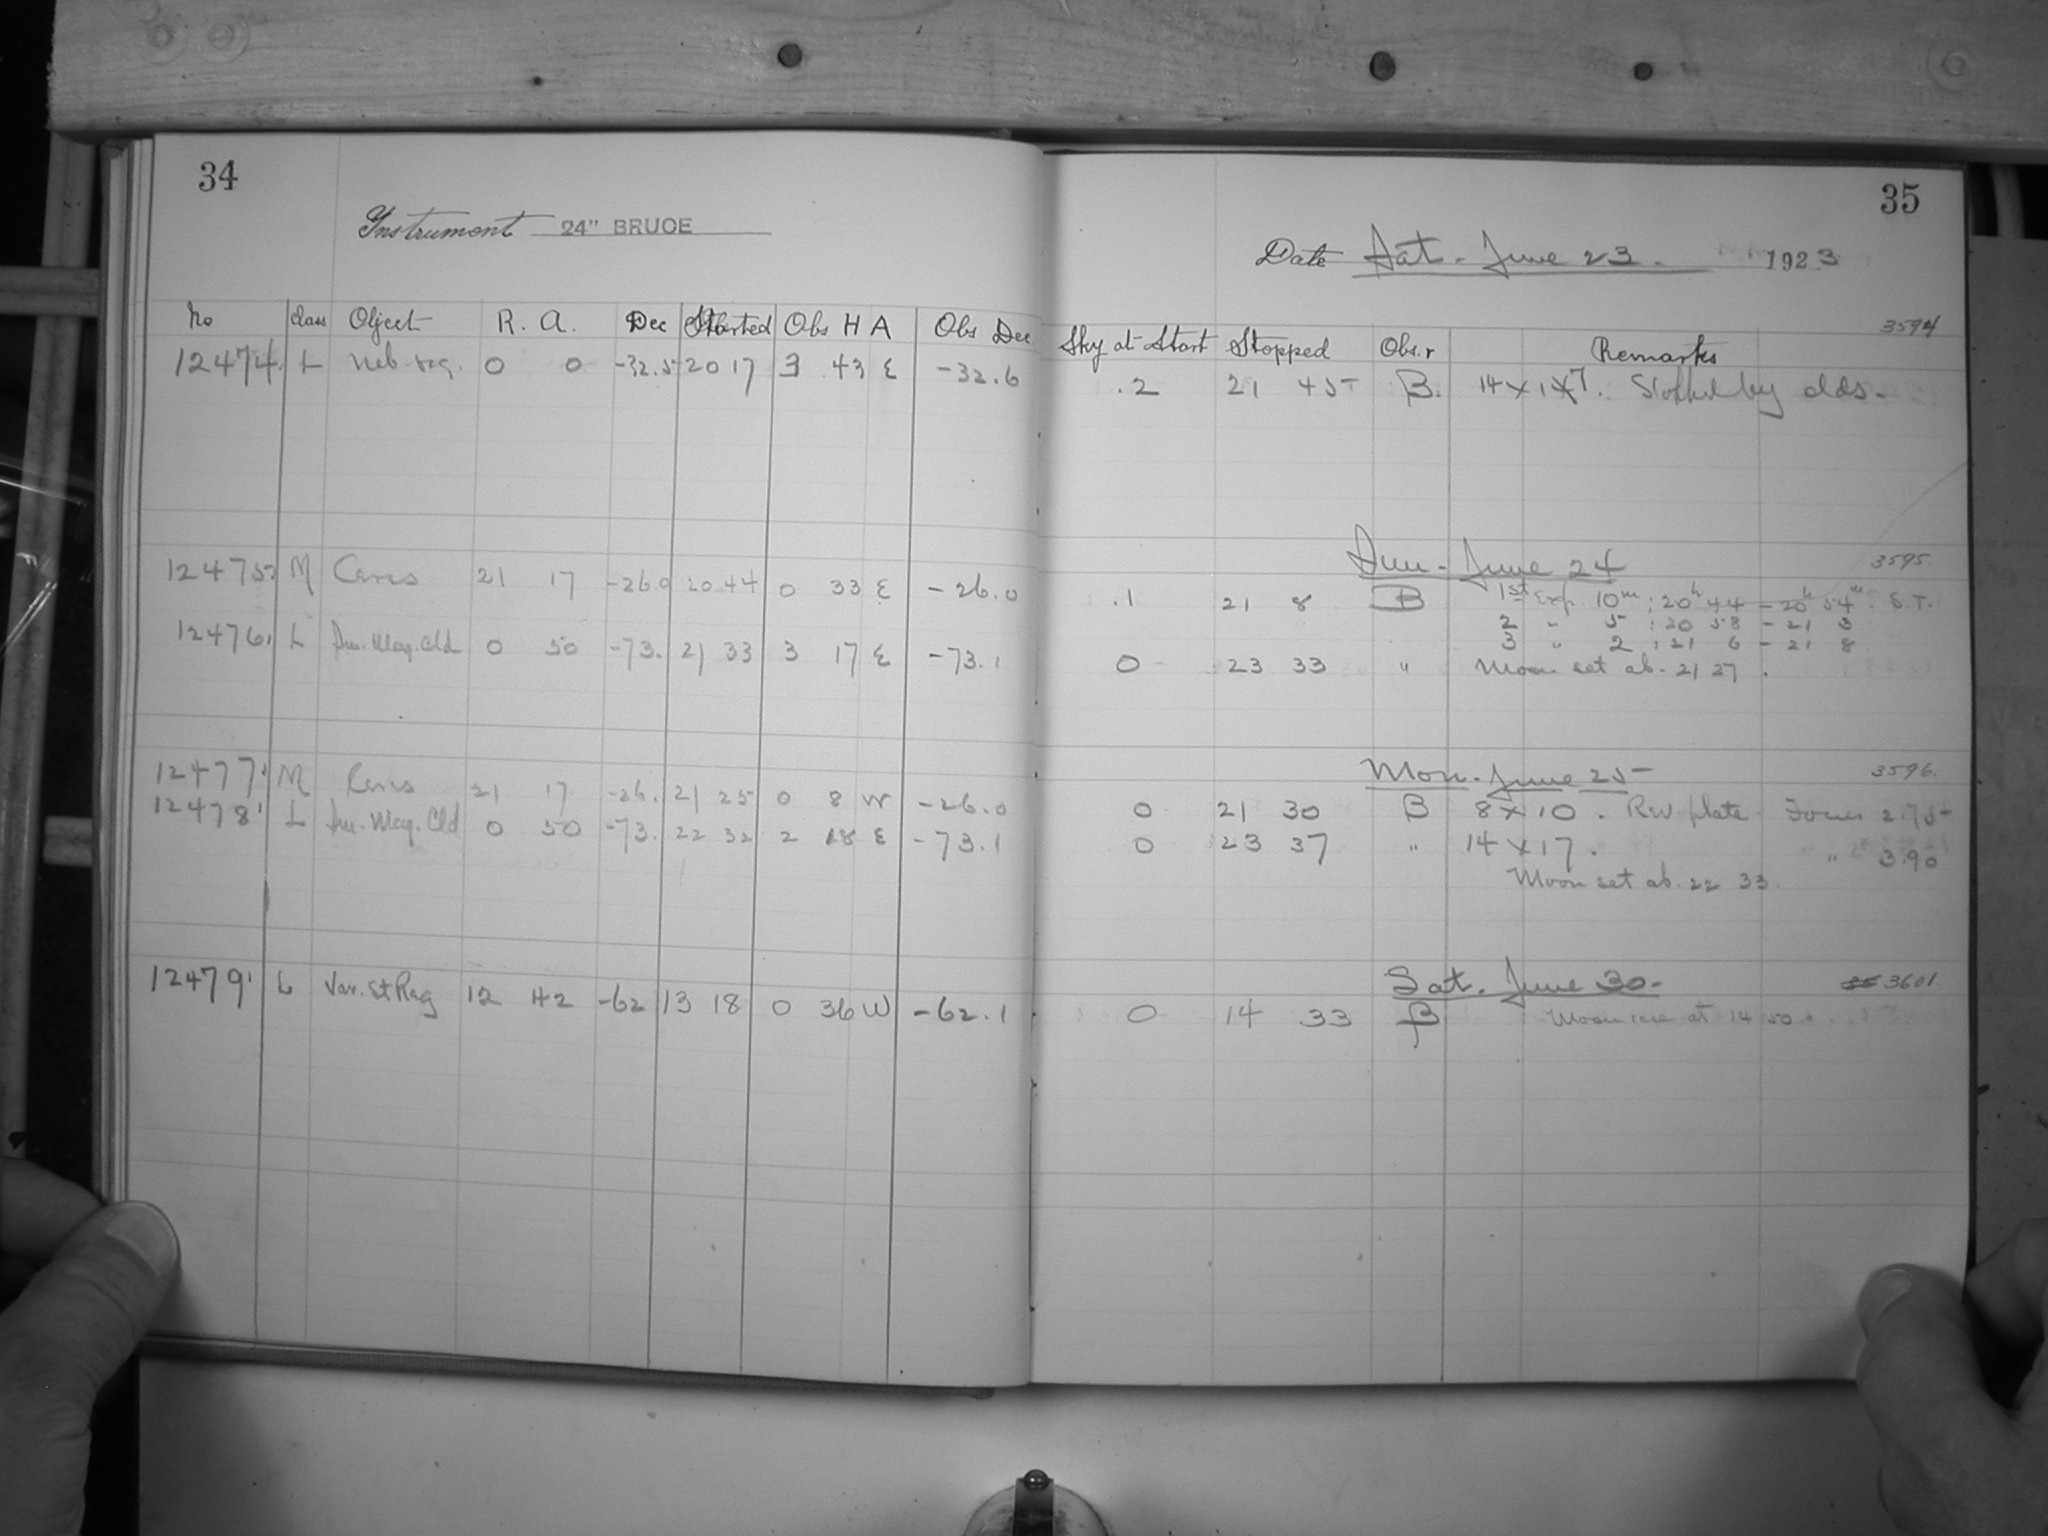 34
Instrument 24" BRUCE
No Class Object R. A. Dec Started Obs H A Obs Dec
12474 L Neb. reg. 0 0 -32.5 20 17 3 43 E -32.6
12475 M Ceres 21 17 -26.0 20 44 0 33 E -26.0
12476 L Sm. Mag. Cld 0 50 -73. 21 33 3 17 E -73.1
12477 M Ceres 21 17 -26. 21 25 0 8 W -26.0
12478 L Sm. Mag. Cld 0 50 -73. 22 32 2 18 E -73.1
12479 L Var. St Reg 12 42 -62 13 18 0 36 W -62.1
35
Date Sat. June 23. 1923
3594
Sky at Start Stopped Obs.r Remarks
.2 21 45 B. 14 x 17. Stopped by clds.
Sun. June 24 3595.
.1 21 8 B 1st Exp. 10m; 20h 44 - 20h 54m. S.T.
2 " 5 ; 20 58 - 21 3
3 " 2 ; 21 6 - 21 8
0 23 33 " Moon set ab. 21 27.
Mon. June 25 3596.
0 21 30 B 8 x 10. Rev. plate Focus 2.75
0 23 37 " 14 x 17. " 3.90
Moon set ab. 22 33.
Sat. June 30. 3601.
0 14 33 B Moon rose at 14 50.